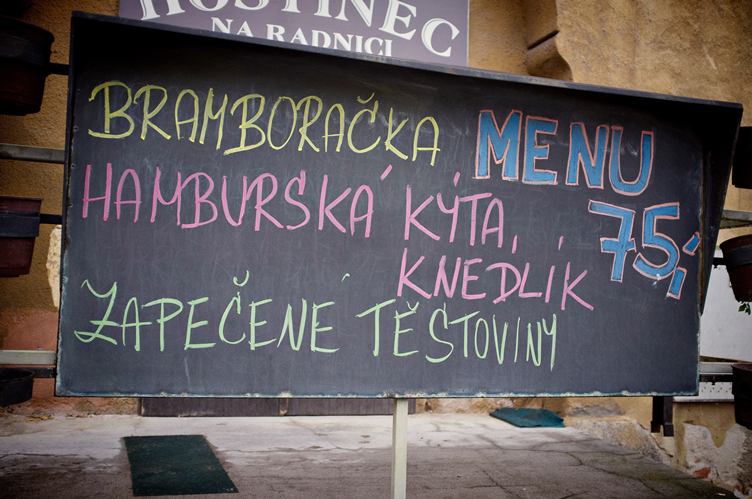 HOSTINEC
NA RADNICI
BRAMBORAČKA
MENU
HAMBURSKÁ KÝTA,
75,-
KNEDLÍK
ZAPEČENÉ TĚSTOVINY